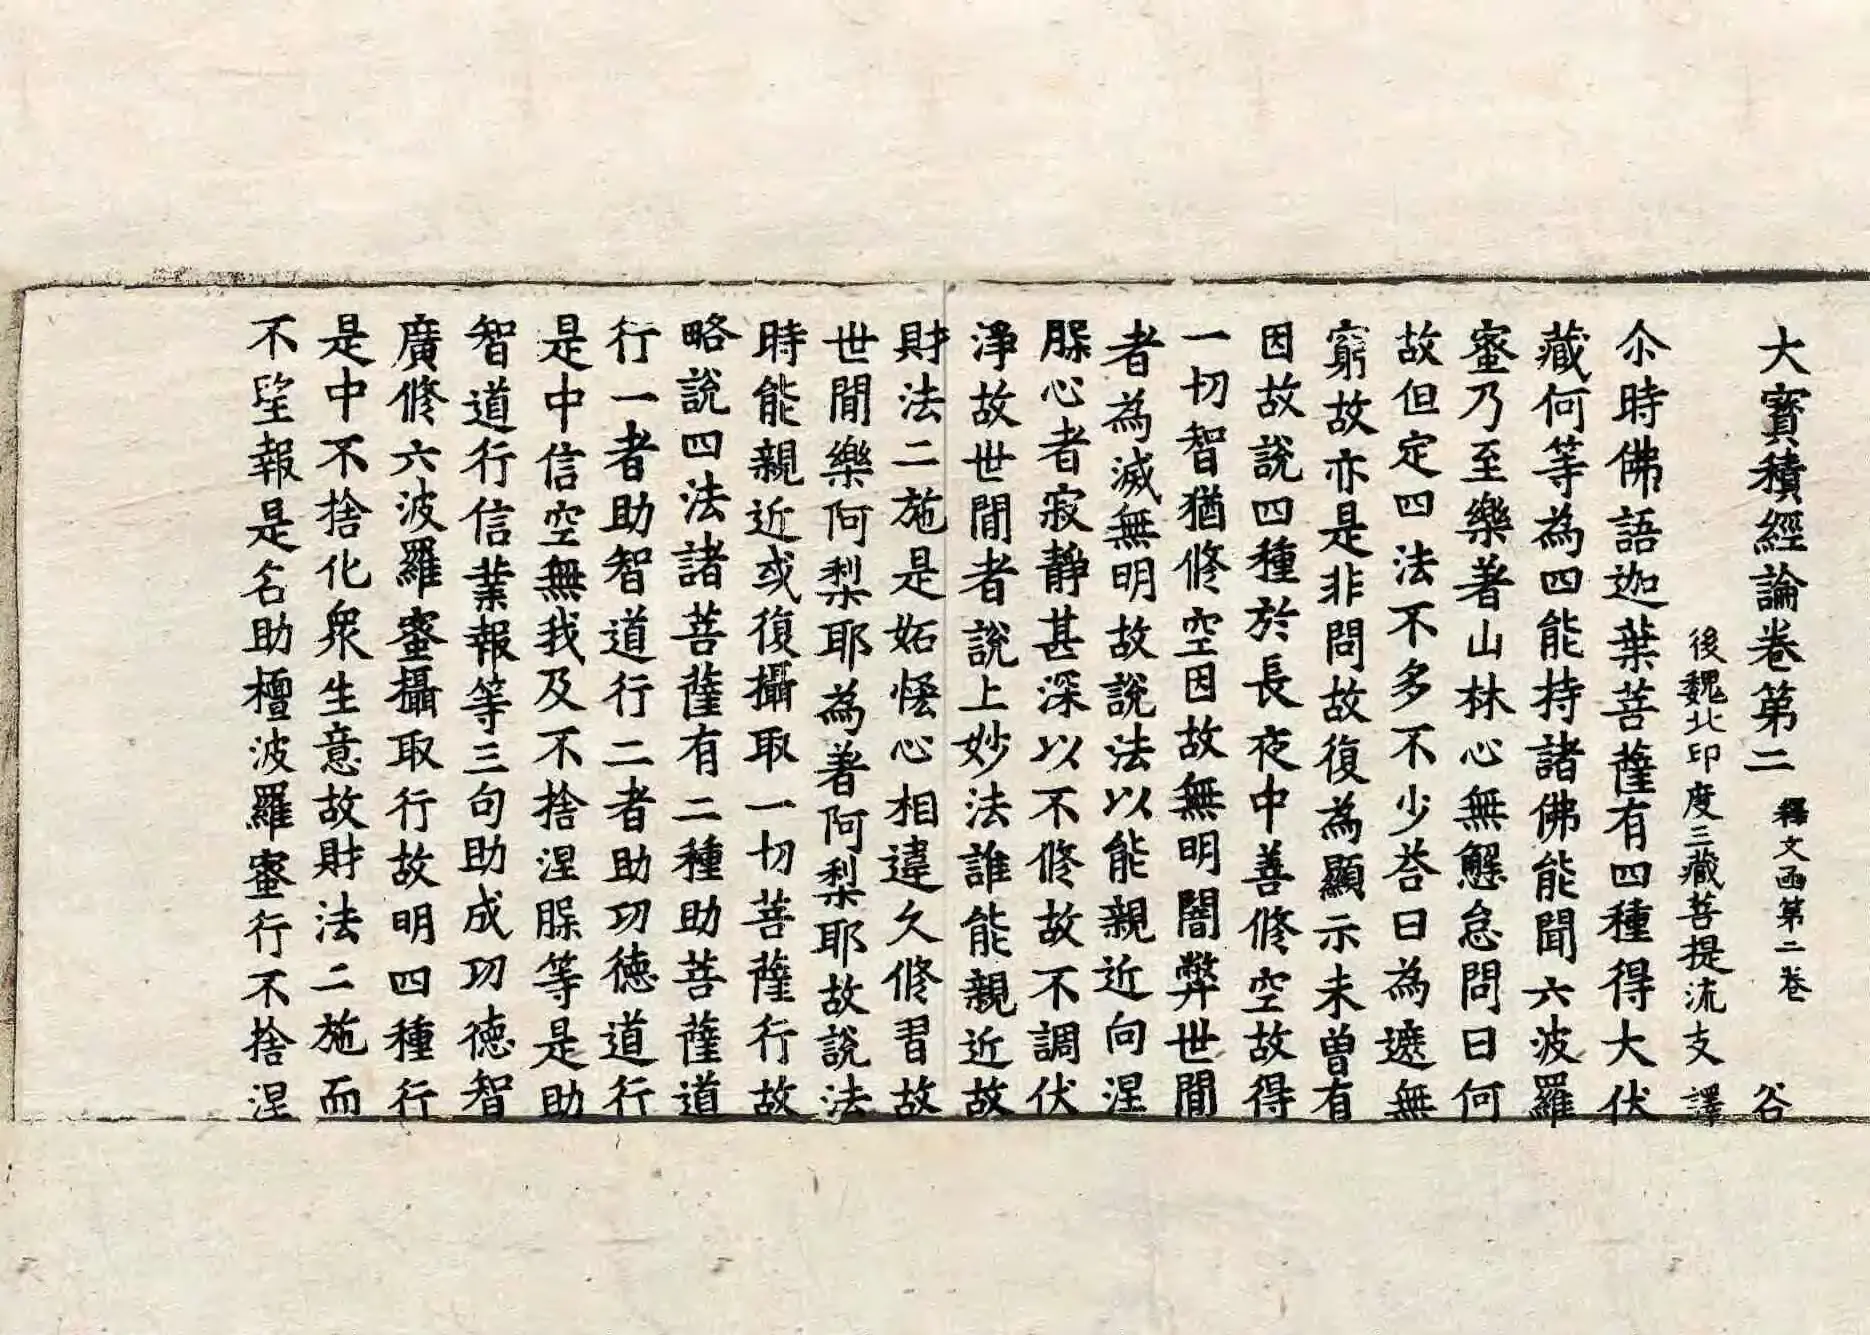 大寶積經論卷第二 釋文函第二卷 谷
後魏北印度三藏菩提流支 譯
尒時佛語迦葉菩薩有四種得大伏
藏何等為四能持諸佛能聞六波羅
蜜乃至樂著山林心無懈怠問曰何
故但定四法不多不少荅曰為遮無
窮故亦是非問故復為顯示未曾有
因故說四種於長夜中善修空故得
一切智猶修空因故無明闇弊世間
者為滅無明故說法以能親近向涅
槃心者寂靜甚深以不修故不調伏
淨故世間者說上妙法誰能親近故
財法二施是妬恡心相違久修習故
世間樂阿梨耶為著阿梨耶故說法
時能親近或復攝取一切菩薩行故
略說四法諸菩薩有二種助菩薩道
行一者助智道行二者助功德道行
是中信空無我及不捨涅槃等是助
智道行信業報等三句助成功德智
廣修六波羅蜜攝取行故明四種行
是中不捨化衆生意故財法二施而
不望報是名助檀波羅蜜行不捨涅